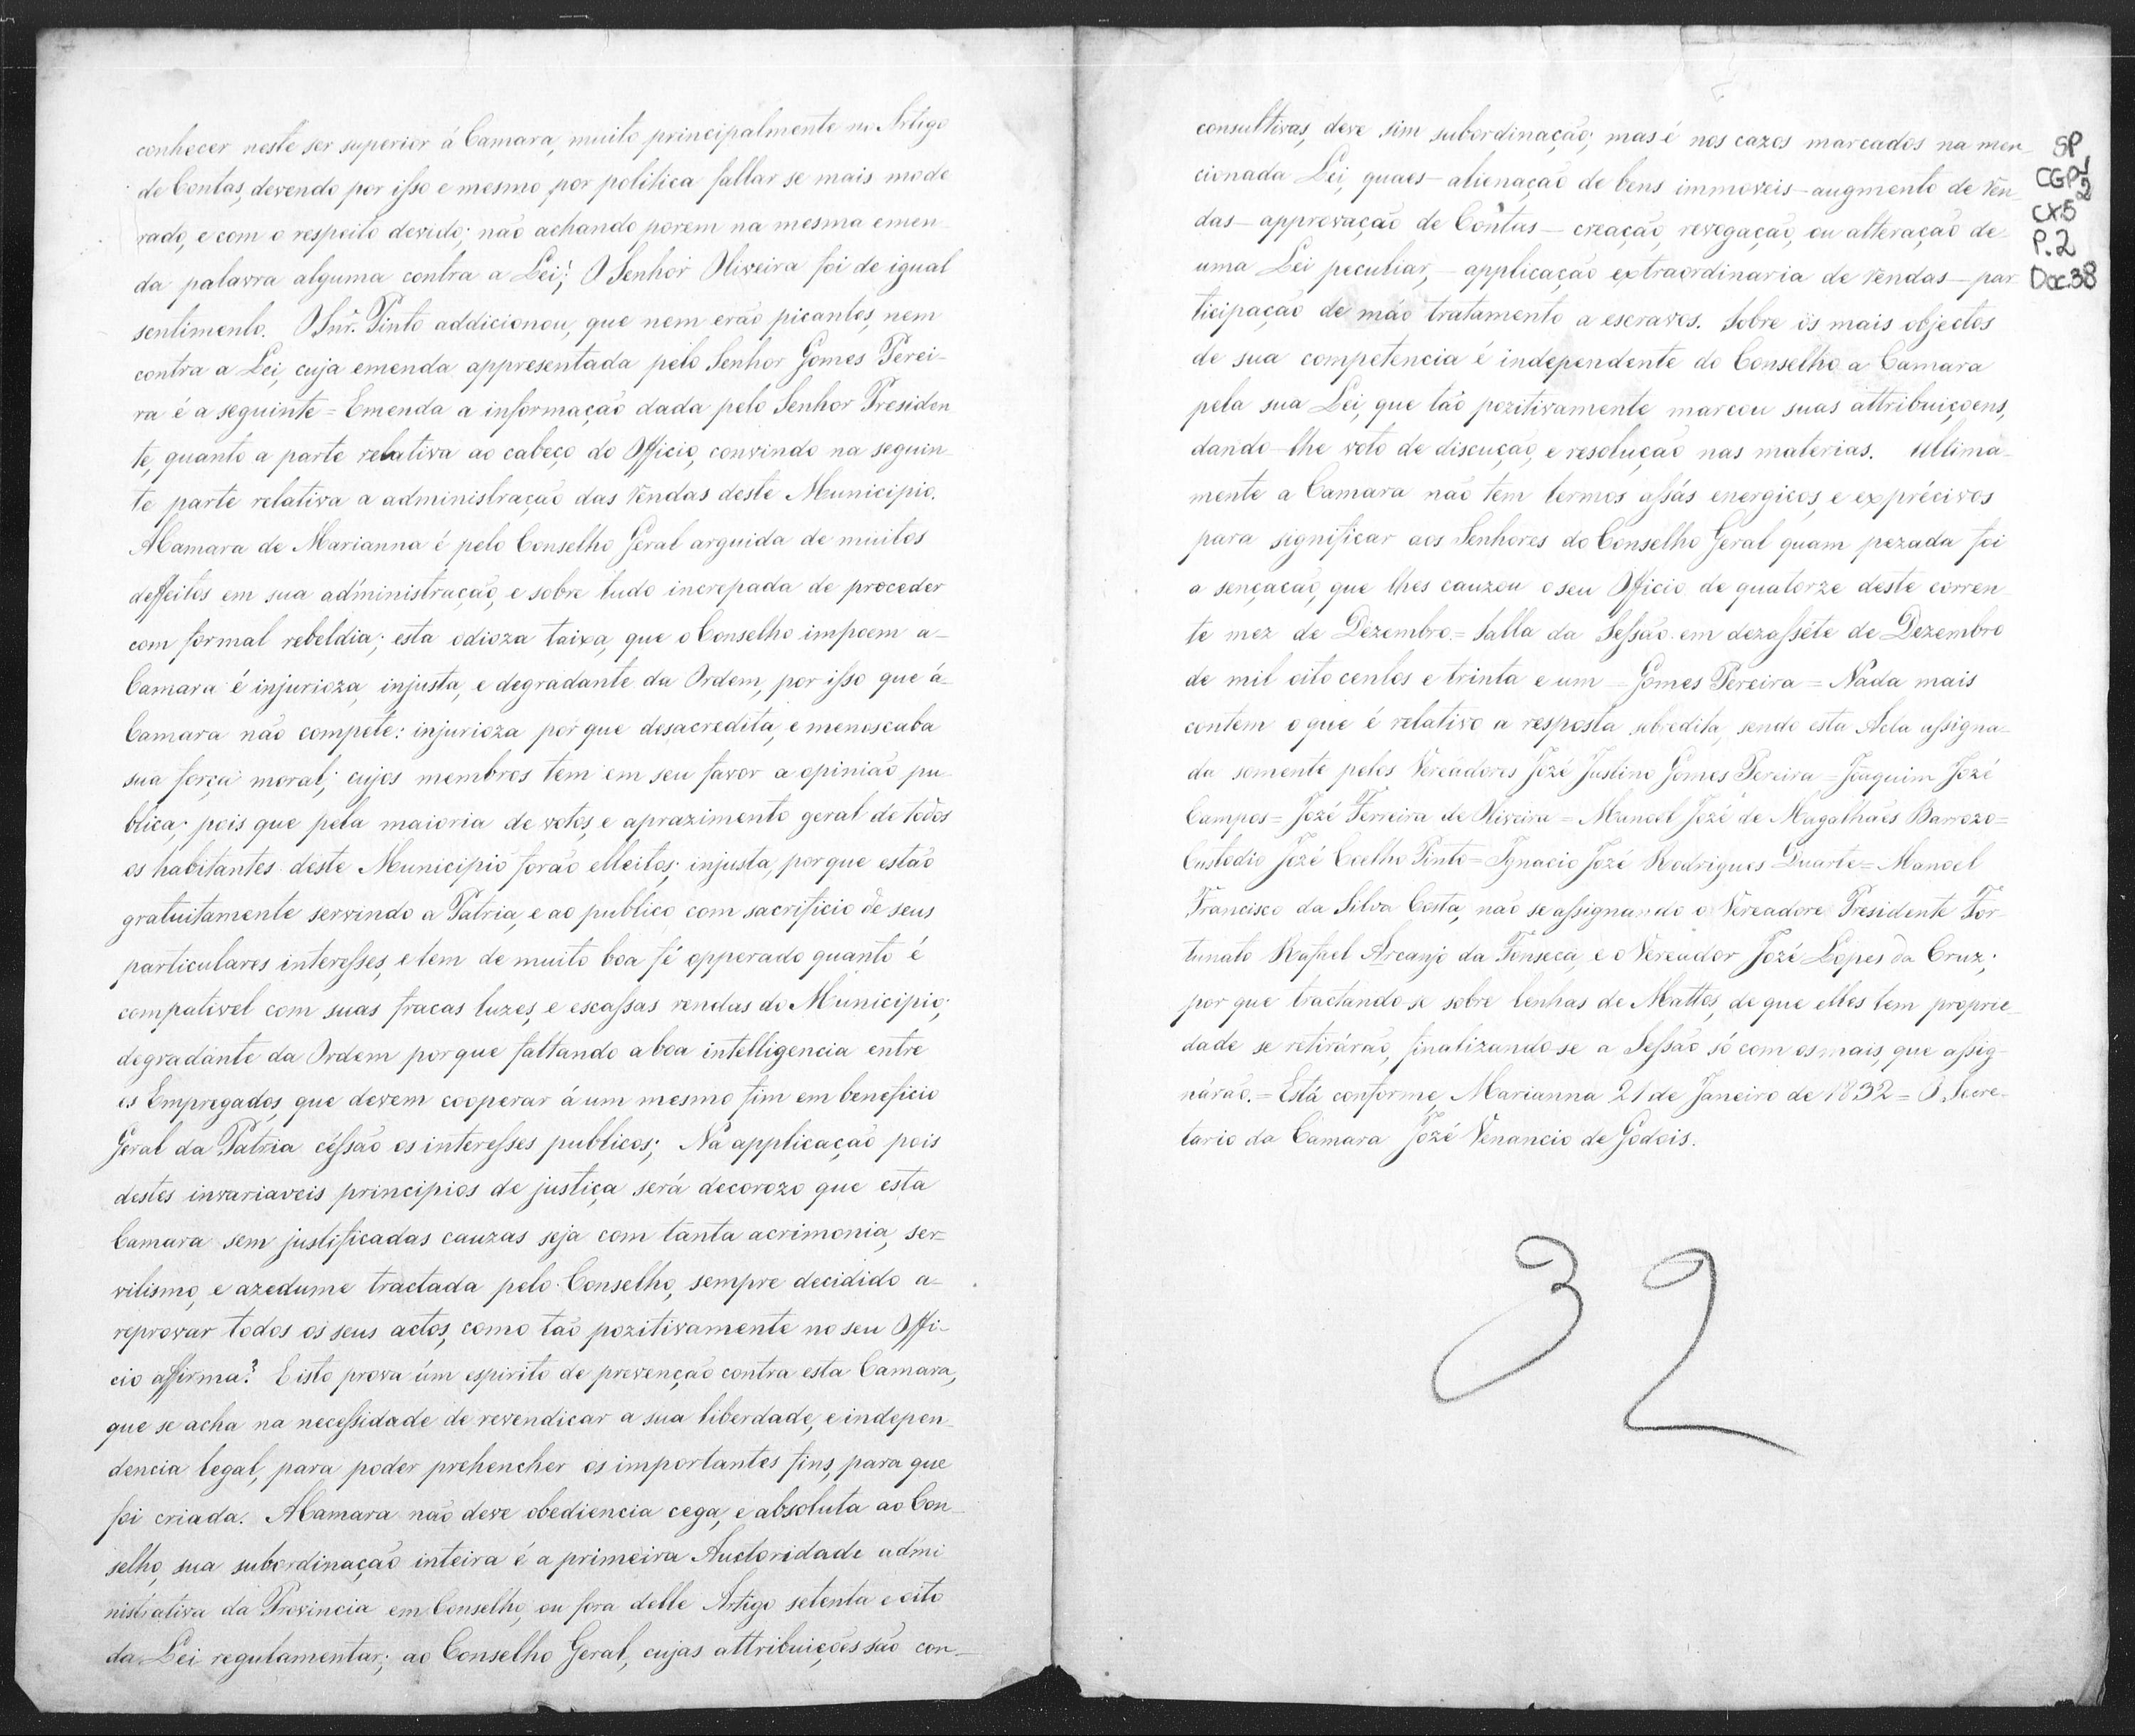 conhecer neste ser superior á Camara, muito principalmente no Artigo
de Contas, devendo por isso e mesmo por politica fallar se mais mode
rado, e com o respeito devido; não achando porem na mesma emen
da palavra alguma contra a Lei; O Senhor Oliveira foi de igual
sentimento. O Snr. Pinto addicionou, que nem erão picantes, nem
contra a Lei, cuja emenda appresentada pelo Senhor Gomes Perei-
ra é a seguinte = Emenda a informação dada pelo Senhor Presiden
te, quanto a parte relativa ao cabeço do Officio, convindo na seguin
te parte relativa a administração das rendas deste Municipio.
A Camara de Marianna é pelo Conselho Geral arguida de muitos
deffeitos em sua administração, e sobre tudo increpada de proceder
com formal rebeldia; esta odioza taixa, que o Conselho impoem a-
Camara é injurioza, injusta, e degradante da Ordem, por isso que á-
Camara não compete: injurioza por que desacredita, e menoscaba
sua força moral; cujos membros tem em seu favor a opinião pu-
blica; pois que pela maioria de votos, e aprazimento geral de todos
os habitantes deste Municipio forão elleitos; injusta, porque estão
gratuitamente servindo a Patria, e ao publico com sacrificio de seus
particulares interesses, e tem de muito boa fé opperado quanto é
compativel com suas fracas luzes, e escassas rendas do Municipio;
degradante da Ordem porque faltando a boa intelligencia entre
os Empregados, que devem cooperar á um mesmo fim em beneficio
Geral da Patria céssão os interesses publicos; Na applicação pois
destes invariaveis principios de justiça será decorozo que esta
Camara sem justificadas cauzas seja com tanta acrimonia, ser=
vilismo, e azedume tractada pelo Conselho, sempre decidido a-
reprovar todos os seus actos, como tão pozitivamente no seu Offi-
cio affirma? E isto prova úm espirito de prevenção contra esta Camara,
que se acha na necessidade de revendicar a sua liberdade, e indepen_
dencia legal, para poder prehencher os importantes fins, para que
foi criada. A Camara não deve obediencia cega, e absoluta ao Con_
selho, sua subordinação inteira é a primeira Auctoridade admi
nistrativa da Provincia em Conselho, ou fora delle Artigo setenta e oito
da Lei regulamentar; ao Conselho Geral, cujas attribuições são con_
consultivas, deve sim subordinação; mas é nos cazos marcados na men_
cionada Lei, quaes - alienação de bens immoveis - augmento de ren_
das - approvação de Contas - creação, revogação, ou alteração de
uma Lei peculiar, - applicação extraordinaria de rendas - par
ticipação de máo tratamento a escravos. Sobre os mais objectos
de sua competencia é independente do Conselho a Camara
pela sua Lei, que tão pozitivamente marcou suas attribuiçoens,
dando-lhe voto de discução, e resolução nas materias. Ultima-
mente a Camara não tem termos assás energicos, e expréçivos
para significar aos Senhores do Conselho Geral quam pezada foi
a sençação, que lhes cauzou o seu Officio de quatorze deste corren
te mez de Dezembro. = Salla da Sessão em dezasséte de Dezembro
de mil oito centos e trinta e um = Gomes Pereira = Nada mais
contem o que é relativo a resposta sobredita, sendo esta Acta assigna-
da somente pelos Vereadores Jozé Justino Gomes Pereira = Joaquim Jozé
Campos = Jozé Ferreira de Oliveira = Manoel Jozé de Magalhães Barrozo =
Custodio Jozé Coelho Pinto = Ignacio Jozé Rodrigues Duarte = Manoel
Francisco da Silva Costa, não se assignando o Vereadore Presidente For-
tunato Rafael Arcanjo da Fonseca, e o Vereador Jozé Lopes da Cruz;
por que tractando-se sobre lenhas de Mattos, de que elles tem proprie_
dade se retirárão, finalizando-se a Sessão só com os mais, que assig-
nárão. = Está conforme, Marianna 21 de Janeiro de 1832 = O Secre-
tario da Camara Jozé Venancio de Godois.
32
SP
CGP1
2
CX.5
P.2
Doc.38